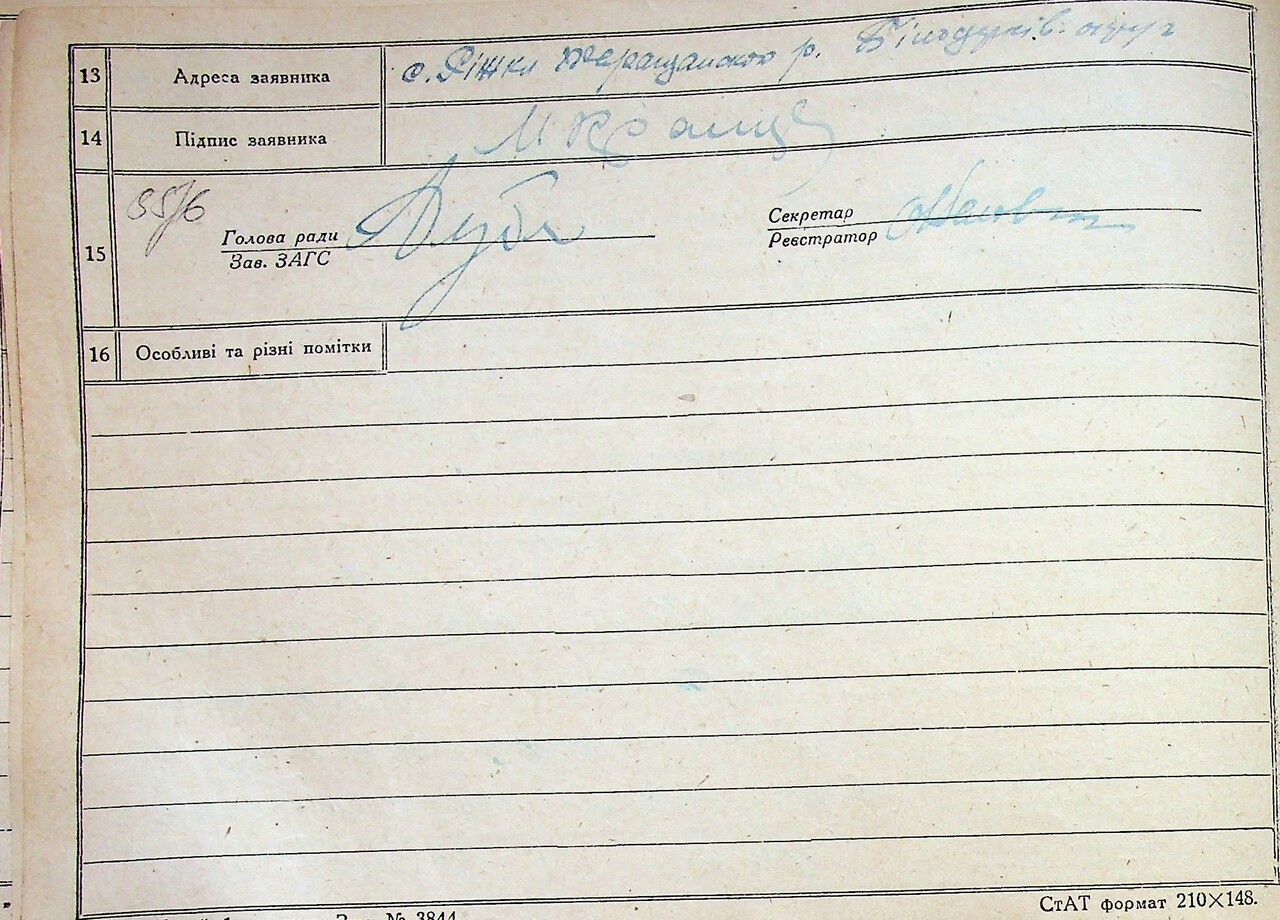 13 Адреса заявника с. Ріжки Таращанского р. Білоцерків. округ
14 Підпис заявника
15
Голова ради
Зав. ЗАГС
Секретар
Реєстратор
16 Особливі та різні помітки
№ 3844
СтАТ формат 210×148.